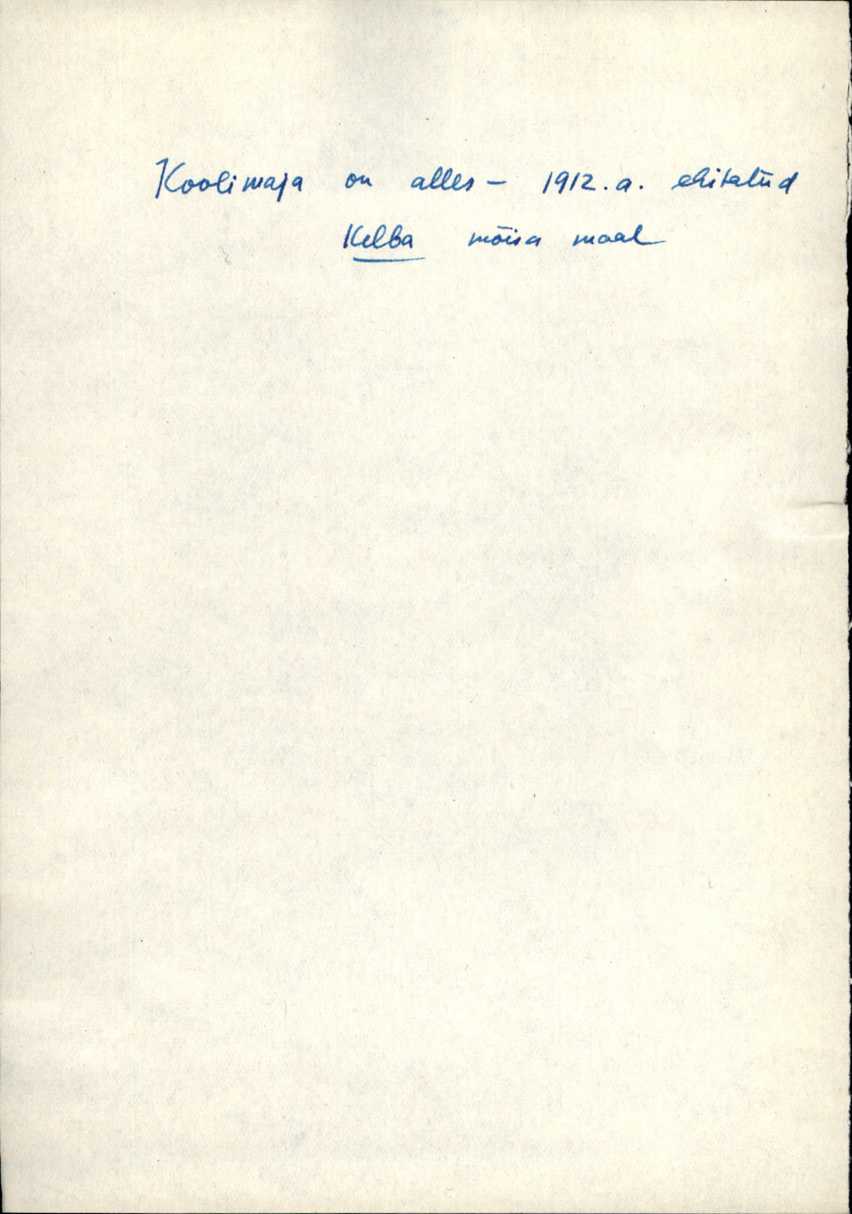 Koolimaja on alles – 1912.a. ehitatud
Kelba mõisa maal